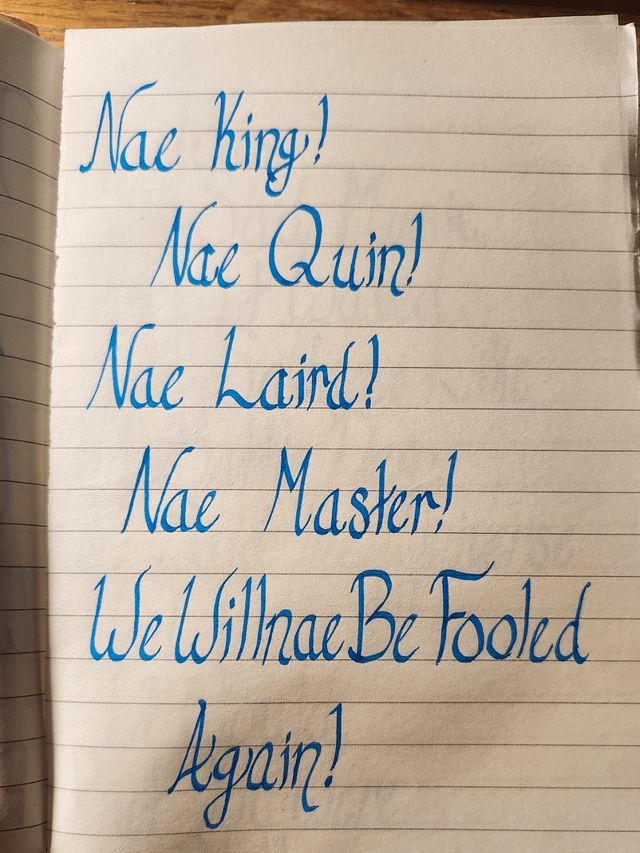 Nae King!
Nae Quin!
Nae Laird!
Nae Master!
We Willnae Be Fooled
Again!